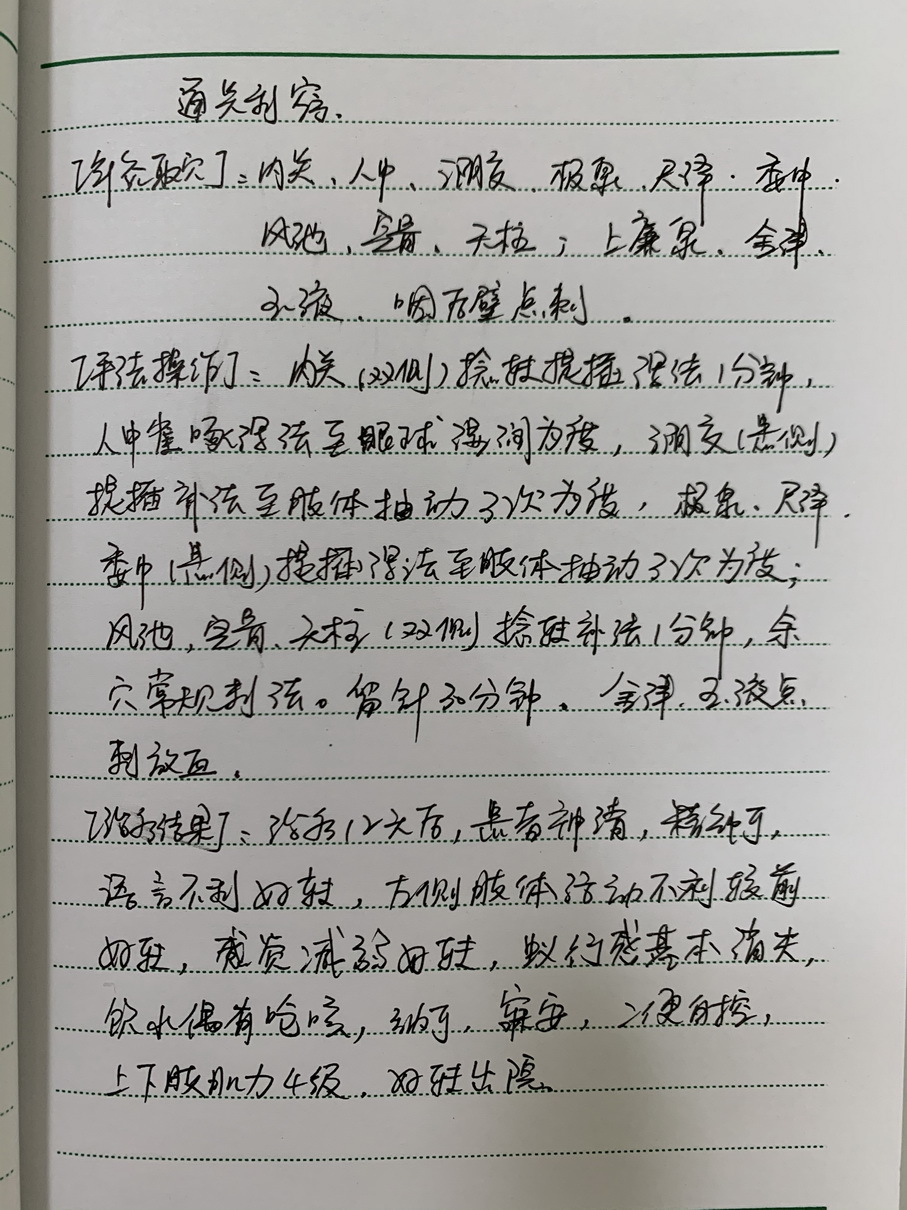 通关利窍.
【针灸取穴】：内关、人中、涌交、极泉、尺泽.委中.
风池、完骨、天柱；上廉泉、金津、
玉液、咽后壁点刺。
【手法操作】：内关(双侧)捻转提插泻法1分钟，
人中雀啄泻法至眼球湿润为度，涌交(患侧)
提插补法至肢体抽动3次为度，极泉、尺泽.
委中(患侧)提插泻法至肢体抽动3次为度；
风池，完骨、天柱(双侧)捻转补法1分钟，余
穴常规刺法。留针30分钟。金津、玉液点
刺放血。
【治疗结果】：治疗12天后，患者神清，精神可，
语言不利好转，左侧肢体活动不利较前
好转，感觉减弱好转，蚁行感基本消失，
饮水偶有呛咳，纳可，寐安，二便自控，
上下肢肌力4级，好转出院。